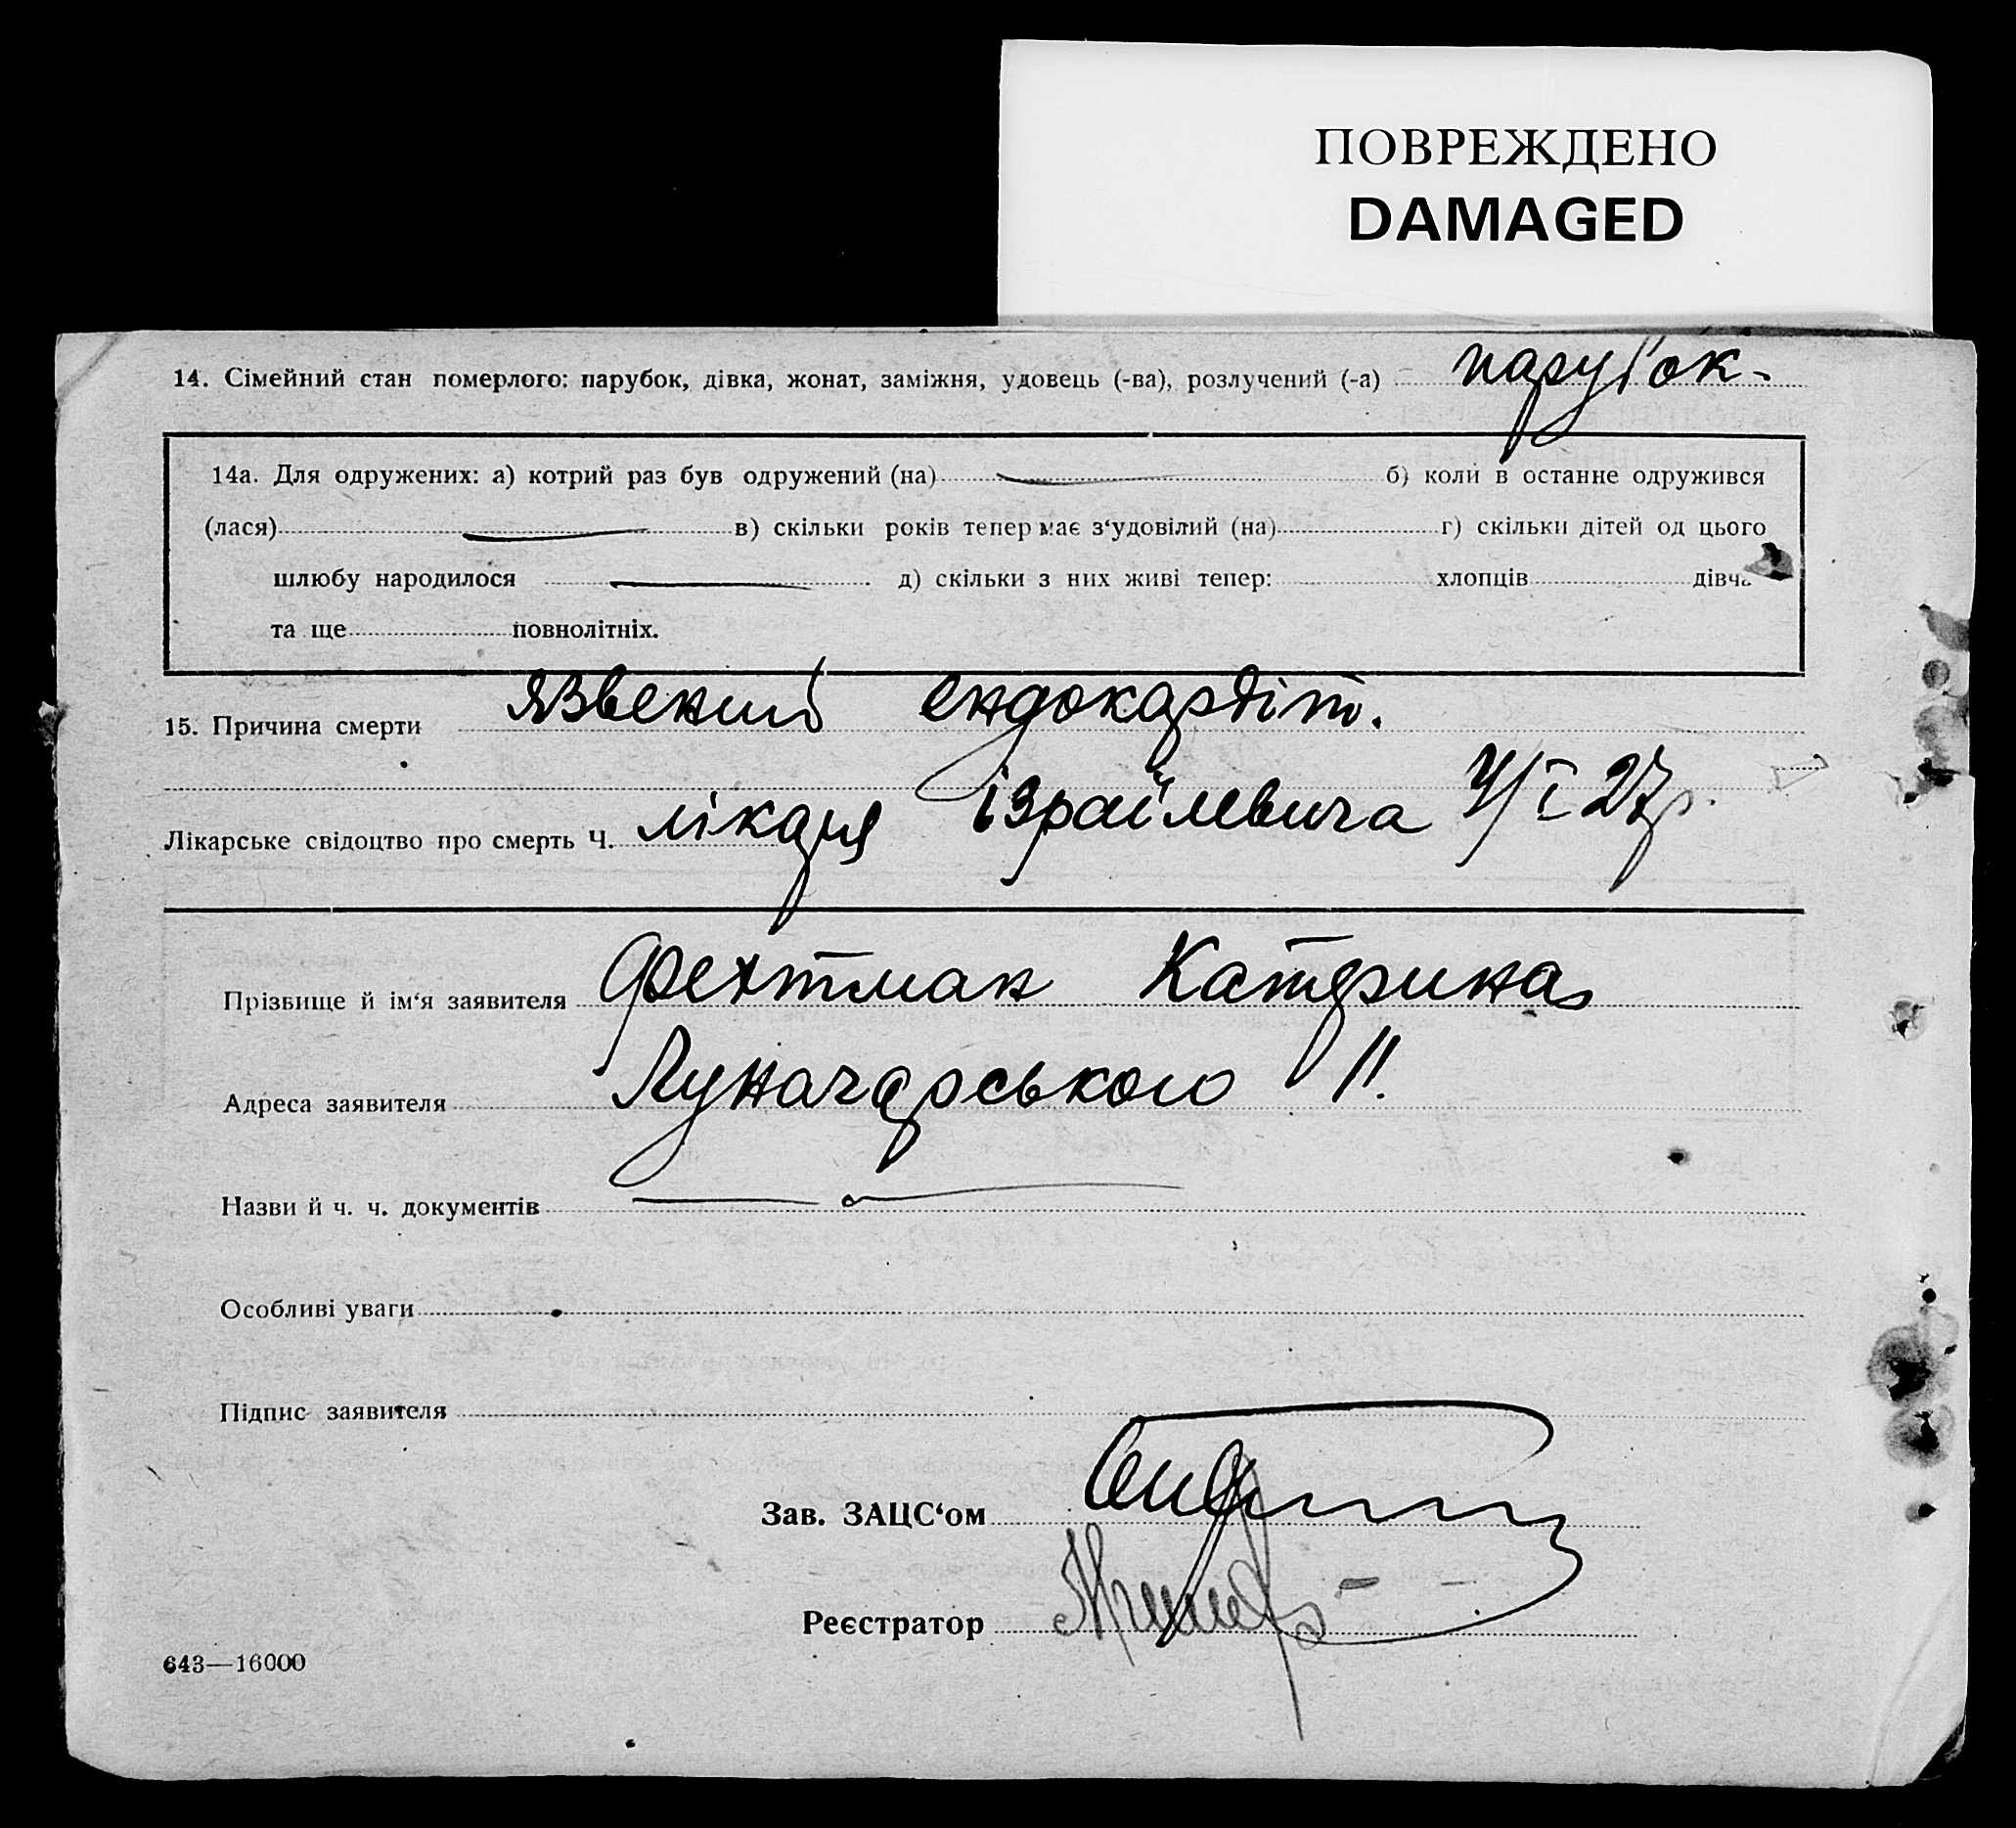 ПОВРЕЖДЕНО
DAMAGED
14. Сімейний стан померлого: парубок, дівка, жонат, заміжня, удовець (-ва), розлучений (-а) парубок -
14а. Для одружених: а) котрий раз був одружений (на) б) коли в останне одружився
(лася) в) скільки років тепер має з‘удовілий (на) г) скільки дітей од цього
шлюбу народилося д) скільки з них живі тепер: хлопців дівча
та ще повнолітніх.
15. Причина смерти язвений ендокардіт.
Лікарське свідоцтво про смерть Ч. лікаря Ізраїлевича 4/I 27р.
Прізвище й ім‘я заявителя Фехтман Катерина
Адреса заявителя Луначарського 11.
Назви й ч. ч. документів
Особливі уваги
Підпис заявителя
Зав. ЗАЦС‘ом
Реєстратор
643—16000